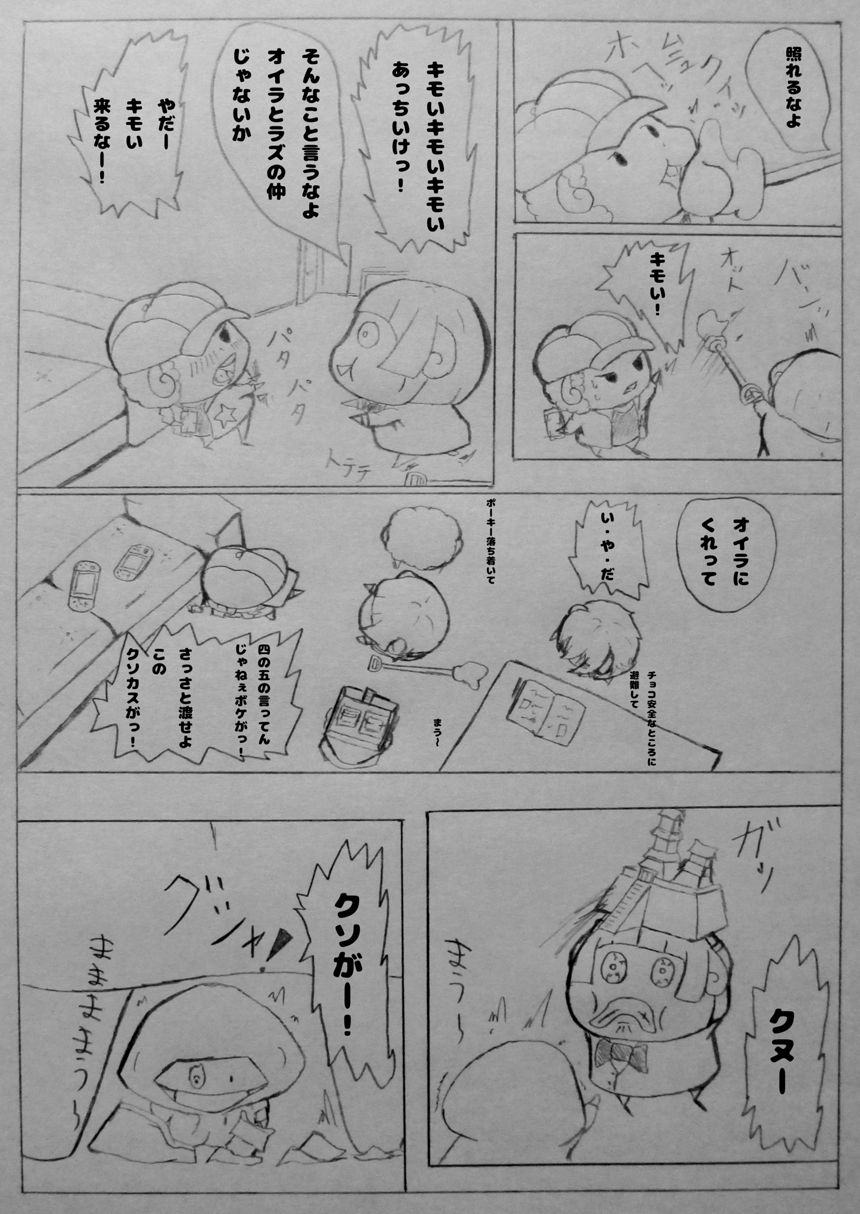 照れるなよ
ホヘッ
ムニュクイッ
キモい！
オット
バンッ
キモいキモいキモい
あっちいけっ！
そんなこと言うなよ
オイラとラズの仲
じゃないか
やだー
キモい
来るなー！
パタ
パタ
トテテ
オイラに
くれって
い・や・だ
チョコ安全なところに
避難して
ポーキー落ち着いて
まう～
四の五の言ってん
じゃねぇボケがっ！
さっさと渡せよ
この
クソカスがっ！
ガッ
クヌー
まう～
クソがー！
グシャ
まままままう～